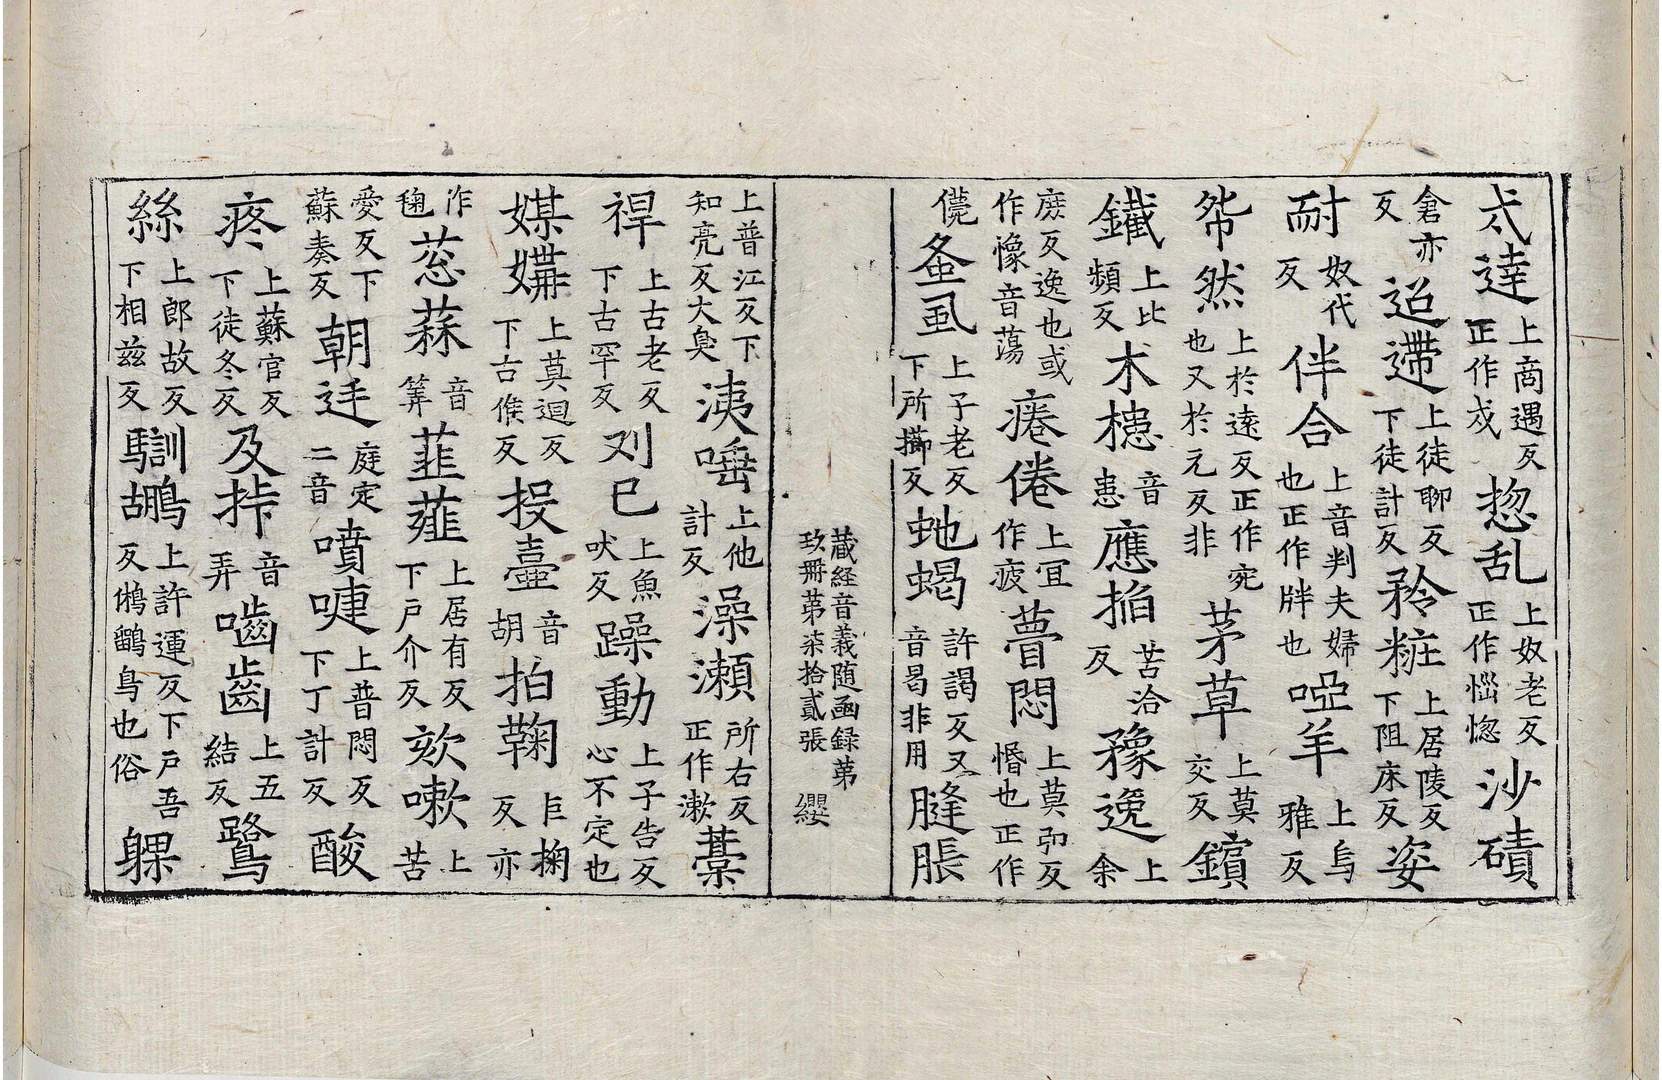 忒達上商遇反正作戍惣乱上奴老反正作惱惚沙磧
倉亦反迢遰上徒聊反下徒計反矜粧上居陵反下阻床反姿
耐奴代反伴合上音判夫婦也正作牉也啞羊上烏雅反
帋然上於遠反正作宛也又於元反非茅草上莫交反鑌
鐵上比頻反木槵音患應掐苦洽反豫逸上余
庶反逸也或作憀音蕩痿倦上宜作疲瞢悶上莫卬反惛也正作
儓蚤虱上子老反下所擳反虵蝎許謁反又音曷非用膖脹
藏経音義随函録第
玖冊第柒拾貳張 纓
上普江反下知亮反大臭洟唾上他計反澡瀬所右反正作漱藁
稈上古老反下古罕反刈已上魚吠反躁動上子告反心不定也
媒媾上莫迴反下古候反投壷音胡拍鞠巨掬反亦
作毱葱蒜音筭韮薤上居有反下戶介反欬嗽上苦
愛反下蘇奏反朝迋庭定二音噴啑上普悶反下丁計反酸
疼上蘇官反下徒冬反及挊音弄嚙齒上五結反鷺
鷥上郎故反下相兹反馴鶘上許運反下戶吾反鵂鶹鳥也俗躶